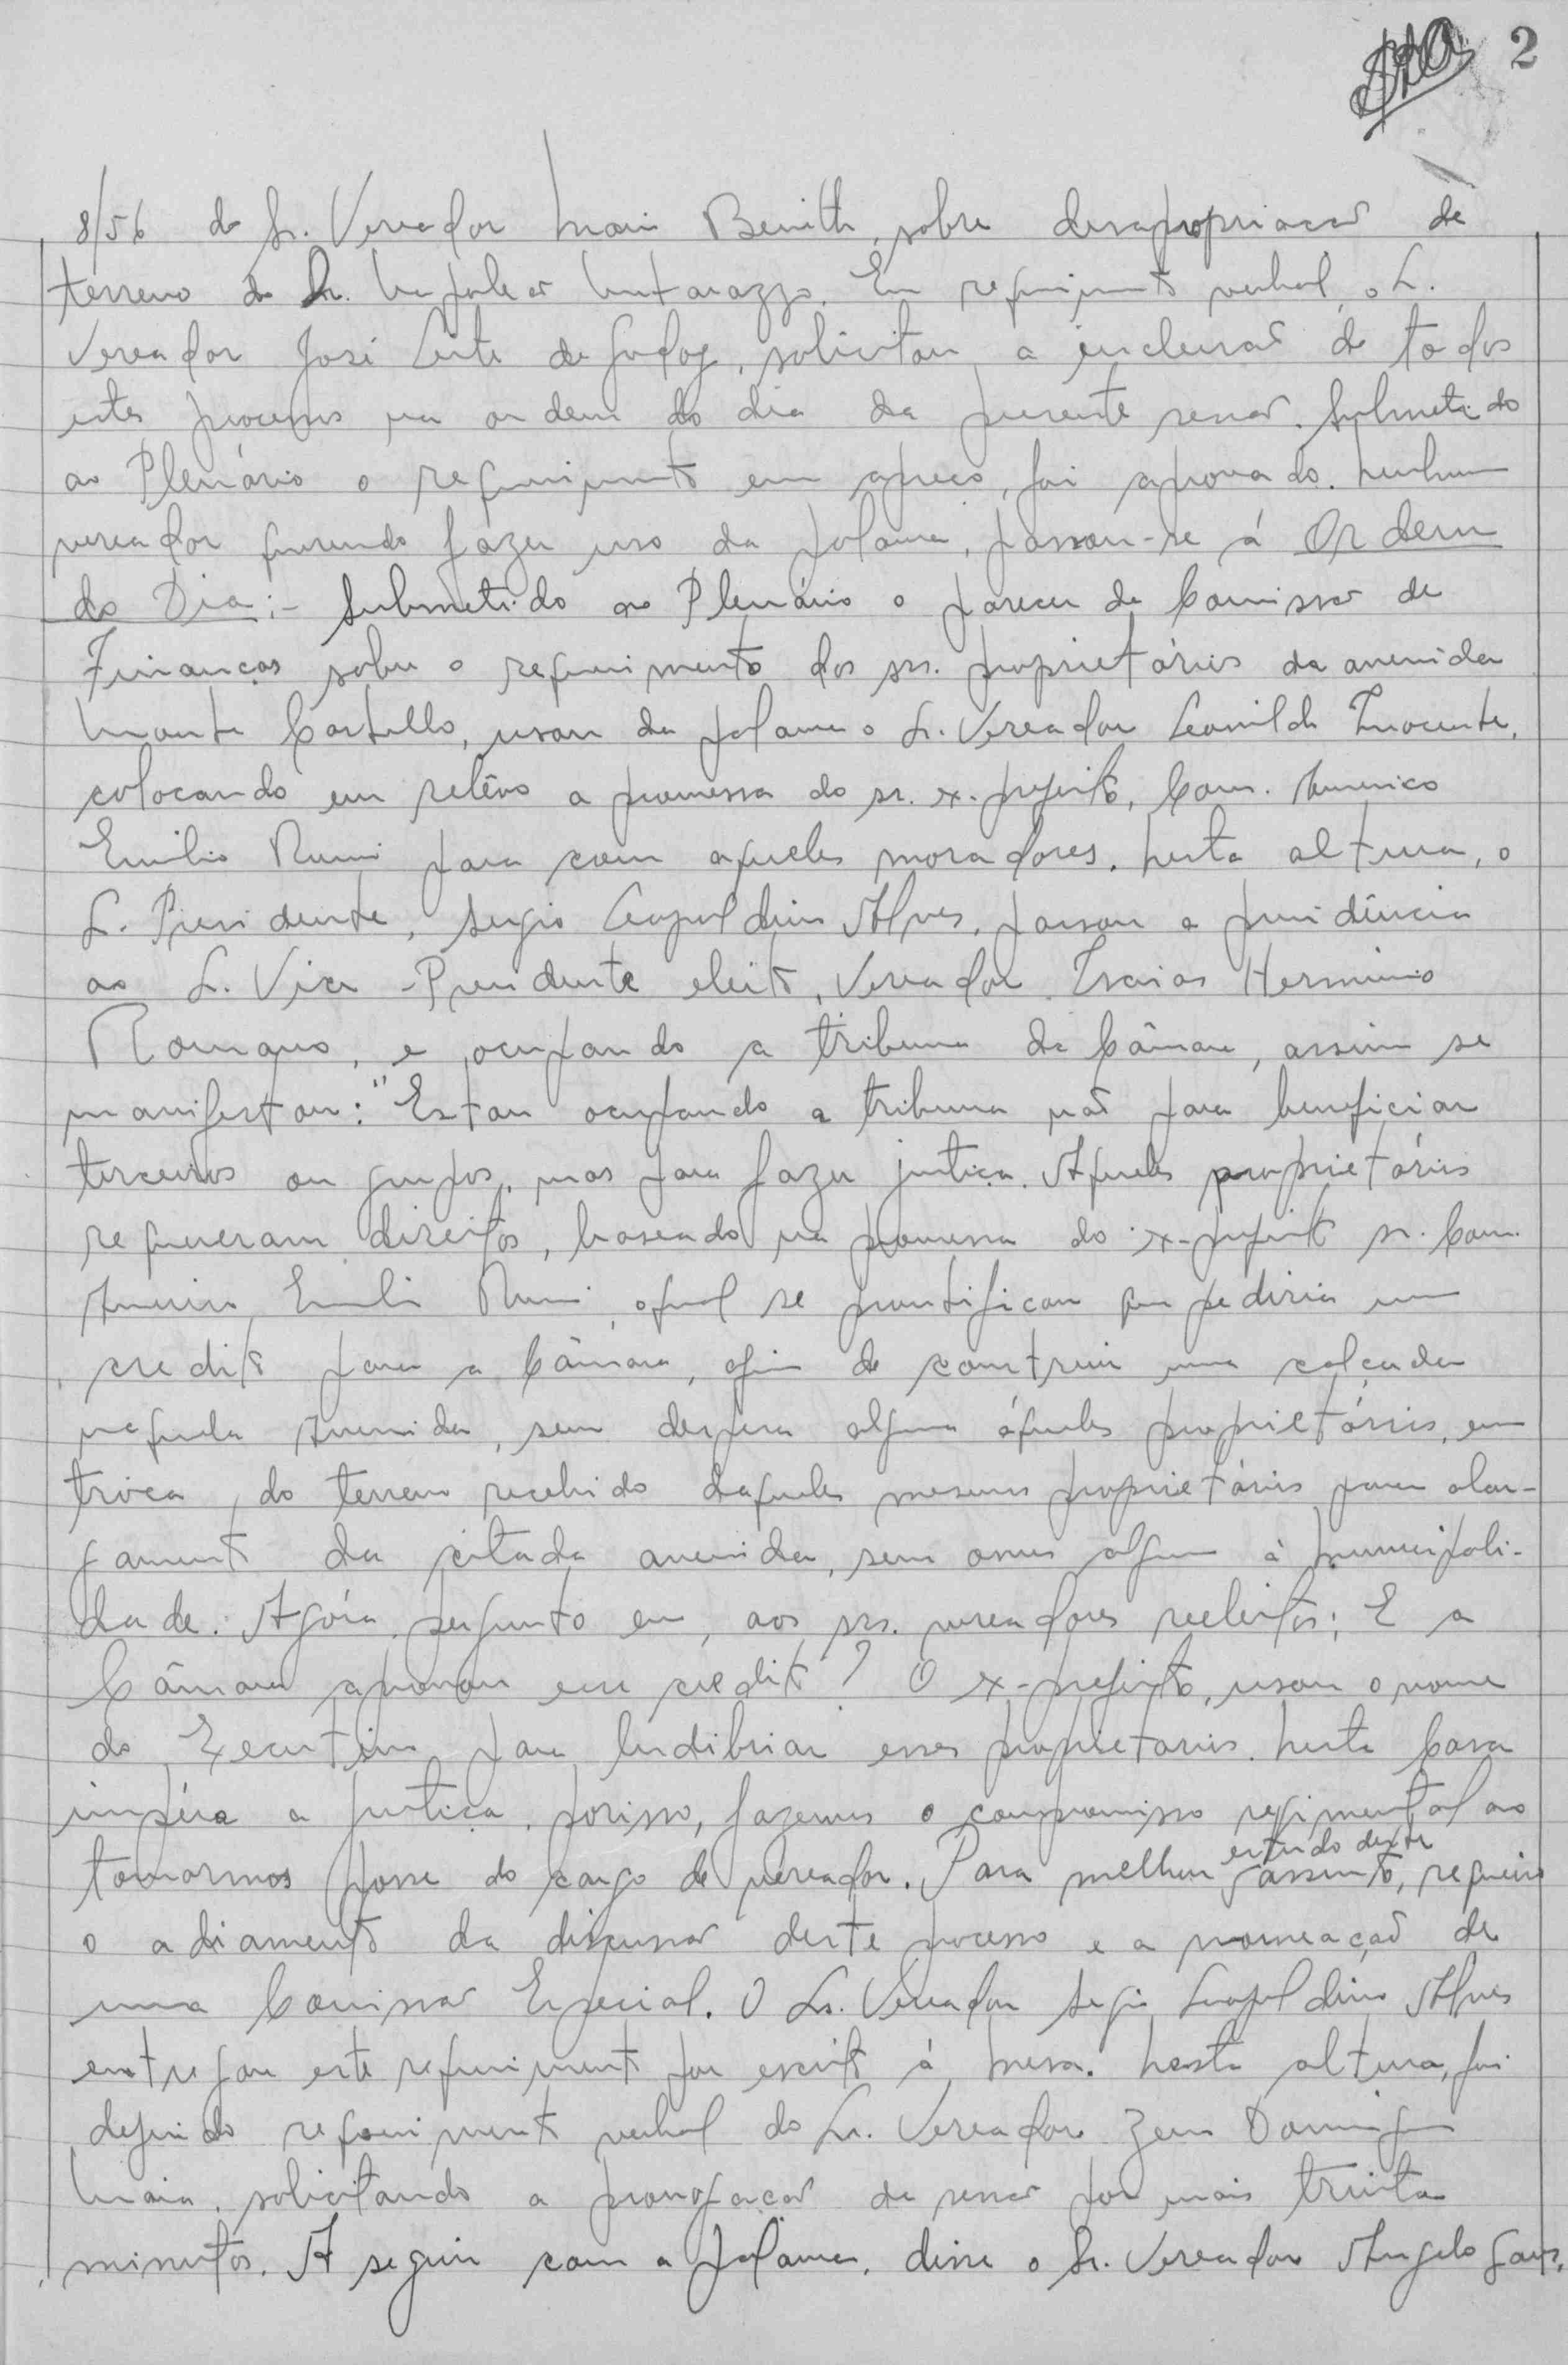 2
8/56 do Sr. Vereador Mario Benith, sobre desapropriação de
terreno do Dr. Matarazzo. Em requerimento verbal, o Sr.
Vereador José Leite de Godoy, solicitou a inclusão de todos
estes processos na ordem do dia da presente sessão. Submetido
ao Plenário o requerimento em apreço, foi aprovado. Nenhum
vereador querendo fazer uso da palavra, passou-se á Ordem
do Dia:- Submetido ao Plenário o parecer da Comissão de
Finanças sobre o requerimento dos srs. proprietários da avenida
Monte Castello, usou da palavra o Sr. Vereador Leonildo Inocente,
colocando em relêvo a promessa do sr. ex-prefeito, Com. Americo
Emilio Rumi para com aqueles moradores. Nesta altura, o
Sr. Presidente, Sergio Leopoldino Alves, passou a presidência
ao Sr. Vice-Presidente eleito, Vereador Isaias Herminio
Romano, e ocupando a tribuna da Câmara, assim se
manifestou: "Estou ocupando a tribuna não para beneficiar
terceiros ou grupos, mas para fazer justiça. Aqueles proprietários
requereram direitos, baseado na promessa do ex-prefeito sr. Com.
Americo Emilio Rumi, o qual se prontificou que pediria um
credito para a Câmara, afim de construir uma calçada
naquela Avenida, sem despesa alguma áqueles proprietários, em
troca, do terreno recebido daqueles mesmos proprietários para alar-
gamento da citada avenida, sem onus algum à Municipali-
dade. Agóra, pergunto eu, aos srs. vereadores reeleitos; E a
Câmara aprovou esse credito? O ex-prefeito, usou o nome
do Executivo para ludibriar esses proprietarios. Nesta Casa
impéra a justiça, porisso, fazemos o compromisso regimental ao
tomarmos posse do cargo de vereador. Para melhor estudo deste assunto, requeiro
o adiamento da discussão deste processo e a nomeação de
uma Comissão Especial. O Sr. Vereador Sergio Leopoldino Alves
entregou este requerimento por escrito á Mesa. Nesta altura, foi
deferido requerimento verbal do Sr. Vereador Zeno Domingues
Maia, solicitando a prorrogação da sessão por mais trinta
minutos. A seguir com a palavra, disse o Sr. Vereador Angelo